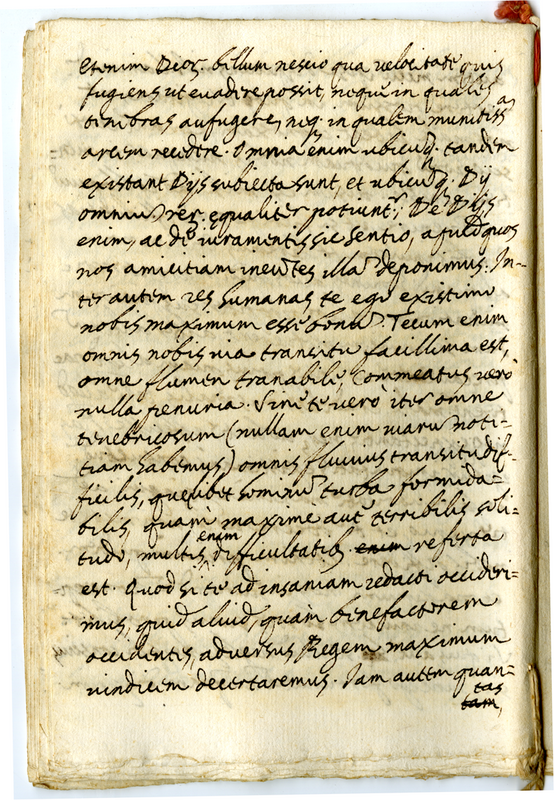 etenim Deor. bellum nescio qua velocitate quis
fugiens ut evadere possit, neque in quales
tenebras aufugere, neq. in qualem munitissā
arcem recedere. Omnia enim ubicuq. tandem
existant Dijs subiecta sunt, et ubicuq. Dij
omniū rer. equaliter potiuntr. De Dijs
enim, ac de iuramentis sic sentio, apud quos
nos amicitiam ineūtes illā deponimus. In-
ter autem res humanas te ego existimo
nobis maximum esse bonū. Tecum enim
omnis nobis via transitu facillima est,
omne flumen tranabile, Commeatus verò
nulla penuria. Sine te verò iter omne
tenebricosum (nullam enim viarū noti-
tiam habemus) omnis fluvius transitu dif-
ficilis, quęlibet hominū turba formida-
bilis, quàm maximè autē terribilis soli-
tudo, multis enim difficultatib. enim referta
est. Quod si te ad insaniam redacti occideri-
mus, quid aliud, quàm benefactorem
occidentes, adversus Regem maximum
vindicem decertaremus. Iam autem quan-
tas
tam,